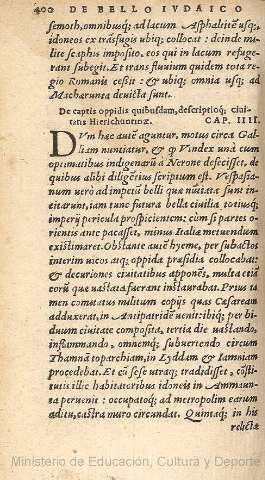 400 DE BELLO IVDAICO
semoth, omnibusq; ad lacum Asphaltitē usq;,
idoneos ex trāsfugis ubiq; collocat: deinde mi-
lite scaphis imposito, eos qui in lacum refuge-
rant subegit. Et trans fluuium quidem tota re-
gio Romanis cessit: & ubiq; omnia usq; ad
Macharunta deuicta sunt.
De captis oppidis quibusdam, descriptioq; ciui-
tatis Hierichuntinæ. CAP. IIII.
DVm hæc autē aguntur, motus circa Gal-
liam nuntiatur, & q̄ Vindex unà cum
optimatibus indigenarū à Nerone descisset, de
quibus alibi diligētius scriptum est. Vespasia-
num uerò ad imperū belli quæ nūtiata sunt in-
citarunt, iam tunc futura bella ciuilia totiusq;
imperij pericula prospicientem: cùm si partes o-
rientis ante pacasset, minus Italiæ metuendum
existimaret. Obstante autē hyeme, per subactos
interim uicos atq; oppida præsidia collocabat:
& decuriones ciuitatibus apponēs, multa etiā
eorū quæ uastata fuerant instaurabat. Prius ta
men comitatus militum copijs quas Cæsaream
adduxerat, in Antipatridē uenit: ibiq; per bi-
duum ciuitate composita, tertia die uastando,
inflammando, omnemq; subuertendo circum
Thamnā toparchiam, in Lyddam & Iamniam
procedebat. Et cū sese utraq; tradidisset, cōsti-
tutis illic habitatoribus idoneis in Ammaun-
ta peruenit: occupatoq; ad metropolim earum
aditu, castra muro circundat. Quintaq; in his
relicta
Ministerio de Educación, Cultura y Deporte